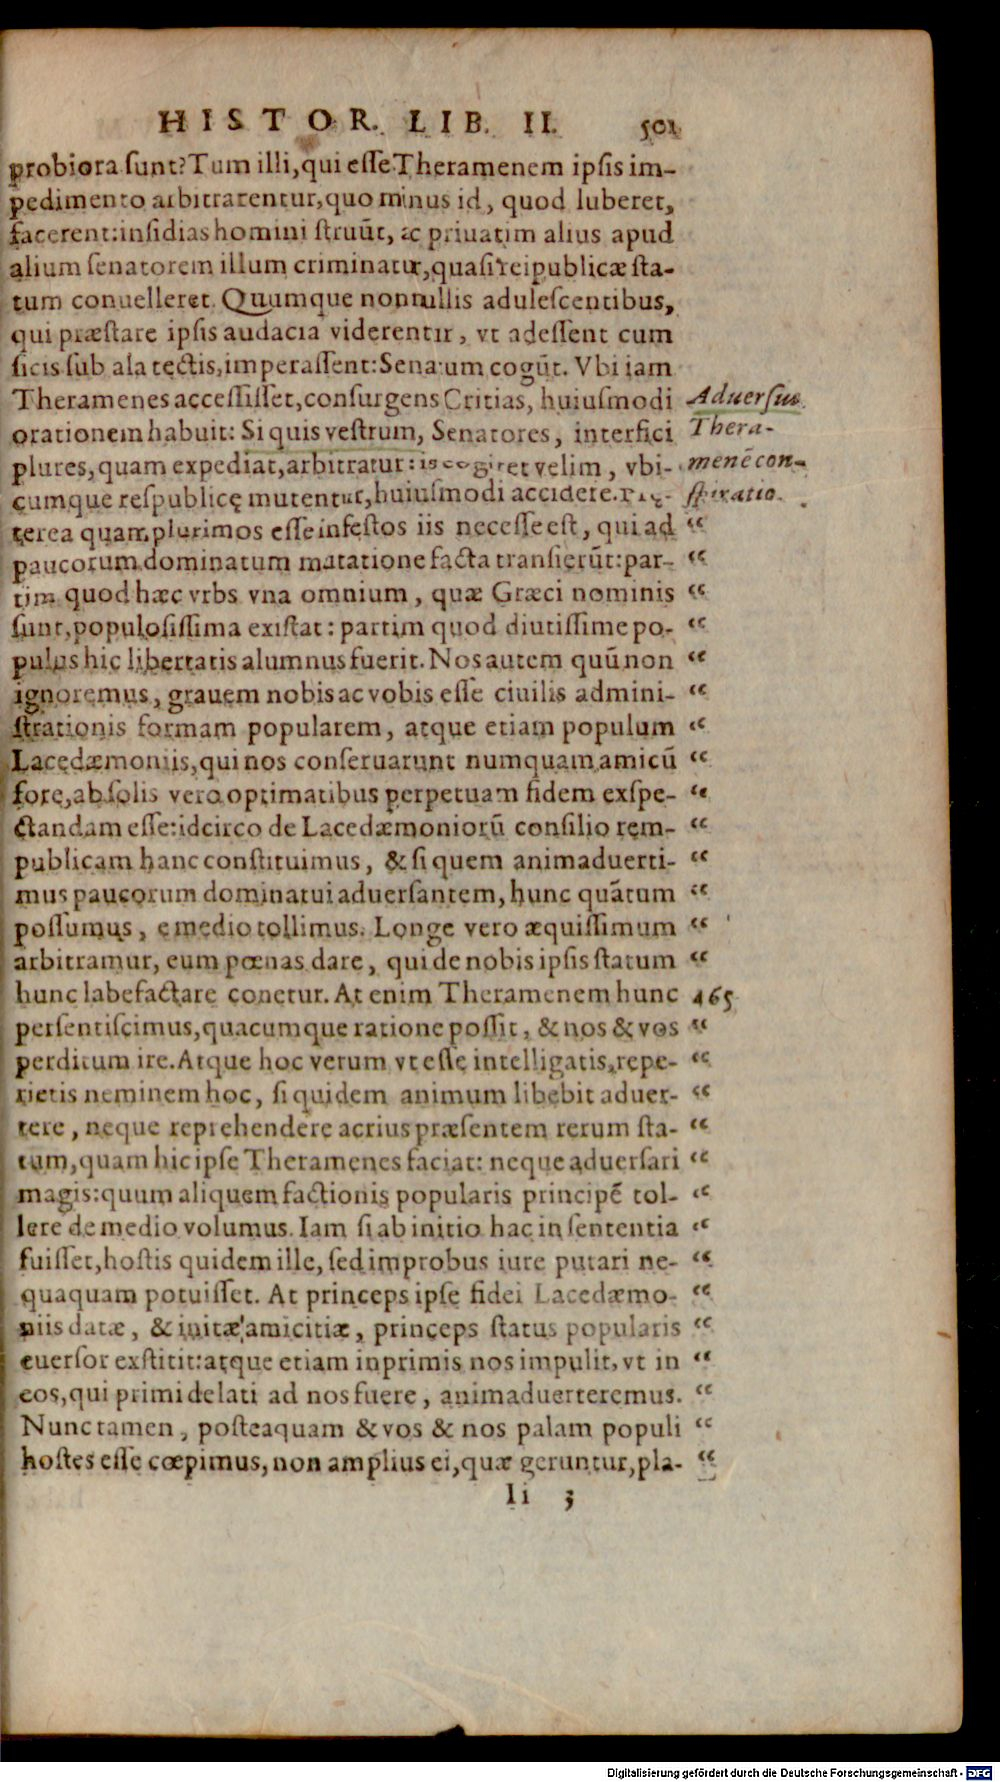 HISTOR. LIB. II. 501
probiora sunt? Tum illi, qui esse Theramenem ipsis im-
pedimento arbitrarentur, quo minus id, quod luberet,
facerent: insidias homini struũt, ac priuatim alius apud
alium senatorem illum criminatur, quasi reipublicæ sta-
tum conuelleret. Quumque nonnullis adulescentibus,
qui præstare ipsis audacia viderentur, vt adessent cum
sicis sub ala tectis, imperassent: Senatum cogũt. Vbi iam
Theramenes accessisset, consurgens Critias, huiusmodi
Aduersus
orationem habuit: Si quis vestrum, Senatores, interfici
Thera-
plures, quam expediat, arbitratur: is cogitet velim, vbi-
menẽ con-
cumque respublicę mutentur, huiusmodi accidere. Pręt-
spiratio.
terea quam plurimos esse infestos iis necesse est, qui ad “
paucorum dominatum mutatione facta transierũt: par- “
tim quod hæc vrbs vna omnium, quæ Græci nominis “
sunt, populosissima existat: partim quod diutissime po- “
pulus hic libertatis alumnus fuerit. Nos autem quũ non “
ignoremus, grauem nobis ac vobis esse ciuilis admini- “
strationis formam popularem, atque etiam populum “
Lacedæmoniis, qui nos conseruarunt numquam amicũ “
fore, ab solis vero optimatibus perpetuam fidem exspe- “
ctandam esse: idcirco de Lacedæmoniorũ consilio rem- “
publicam hanc constituimus, & si quem animaduerti- “
mus paucorum dominatui aduersantem, hunc quãtum “
possumus, e medio tollimus. Longe vero æquissimum “
arbitramur, eum pœnas dare, qui de nobis ipsis statum “
hunc labefactare conetur. At enim Theramenem hunc 465
persentiscimus, quacumque ratione possit, & nos & vos “
perditum ire. Atque hoc verum vt esse intelligatis, repe- “
rietis neminem hoc, si quidem animum libebit aduer- “
tere, neque reprehendere acrius præsentem rerum sta- “
tum, quam hic ipse Theramenes faciat: neque aduersari “
magis: quum aliquem factionis popularis principẽ tol- “
lere de medio volumus. Iam si ab initio hac in sententia “
fuisset, hostis quidem ille, sed improbus iure putari ne- “
quaquam potuisset. At princeps ipse fidei Lacedæmo- “
niis datæ, & initæ amicitiæ, princeps status popularis “
euersor exstitit: atque etiam inprimis nos impulit, vt in “
eos, qui primi delati ad nos fuere, animaduerteremus. “
Nunc tamen, posteaquam & vos & nos palam populi “
hostes esse cœpimus, non amplius ei, quæ geruntur, pla- “
Ii 3
Digitalisierung gefördert durch die Deutsche Forschungsgemeinschaft - DFG